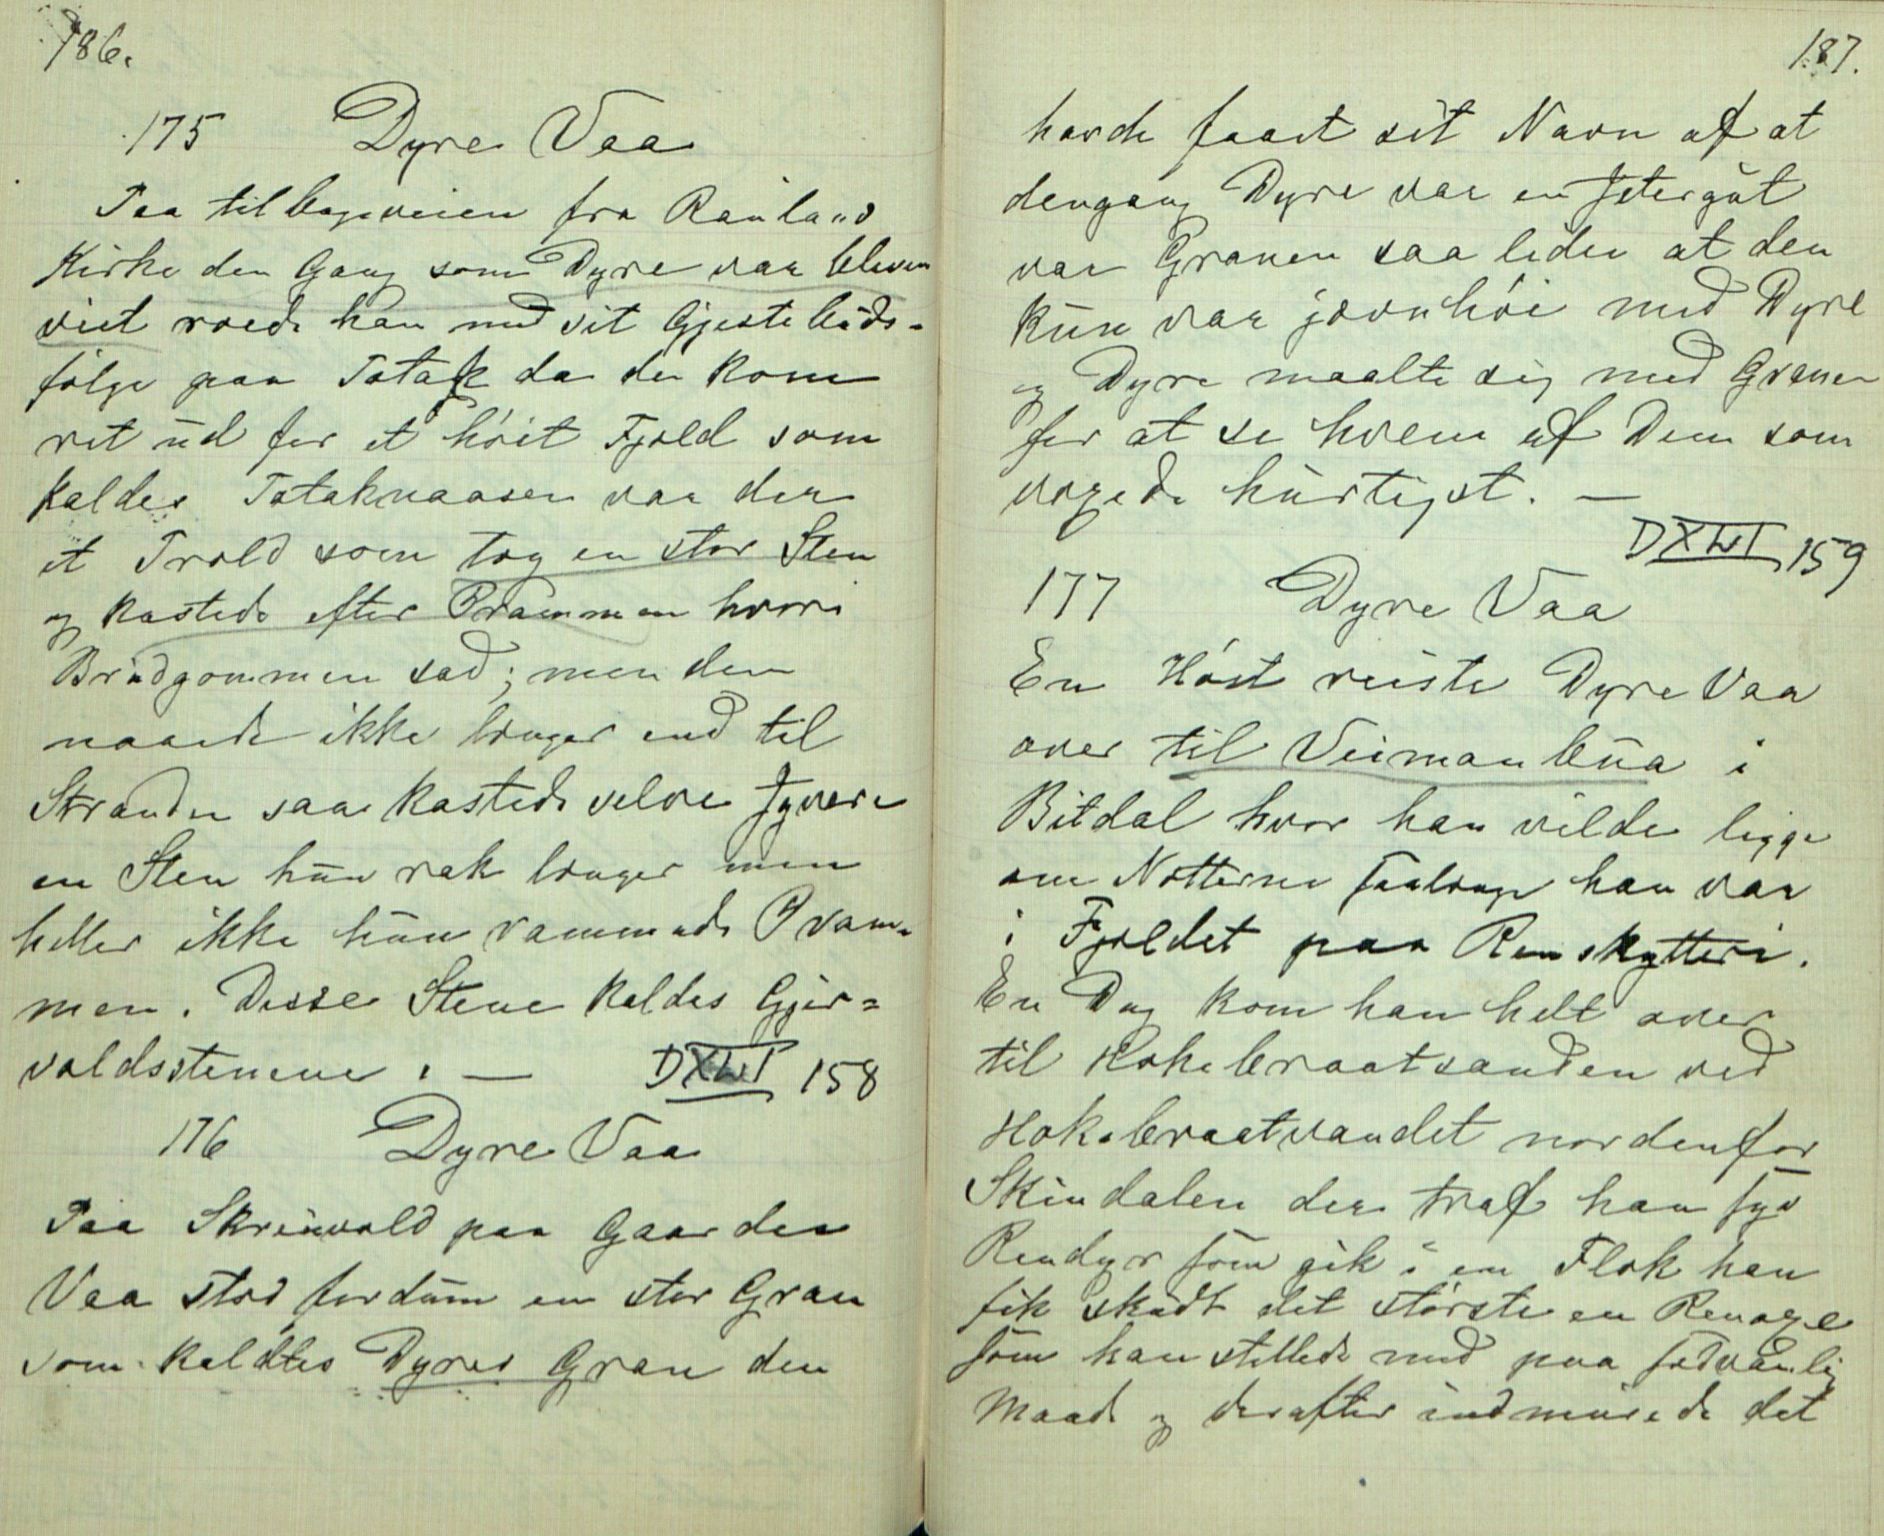 186.
175 Dyre Vaa
Paa tilbageveien fra Rauland
Kirke den Gang som Dyre var bleven
viet roede han med sit Gjestebuds-
følge paa Totak da de kom
ret ud for et høit Fjeld som
kaldes Totaknaasen var der
et Trold som tog en stor Sten
og kastede efter Prammen hvori
Brudgommen sad; men den
naaede ikke længer end til
Stranden saa kastede selve Gyvere
en Sten hun rak længer men
heller ikke hun rammede Pram-
men. Disse Stene kaldes Gjur-
valdsstenene. —
DXLVI 158
176 Dyre Vaa
Paa Skreuvold paa Gaarden
Vaa stod fordum en stor Gran
som kaldtes Dyres Gran den
187.
havde faaet sit Navn af at
dengang Dyre var en Jetergut
var Granen saa liden at den
kun var jævnhøi med Dyre
og Dyre maalte sig med Granen
for at se hvem af Dem som
voxede hurtigst. —
DXLVI 159
177 Dyre Vaa
En Høst reiste Dyre Vaa
over til Veimanbua i
Bitdal hvor han vilde ligge
om Nætterne saalænge han var
i Fjeldet paa Renskytteri.
En Dag kom han helt over
til Hokebraatsanden ved
Hokebraatvandet nordenfor
Skindalen der traf han syv
Rendyr som gik i en Flok han
fik skudt det største en Renoxe
som han stellede med paa sedvanlig
Maade og derefter indmurede det